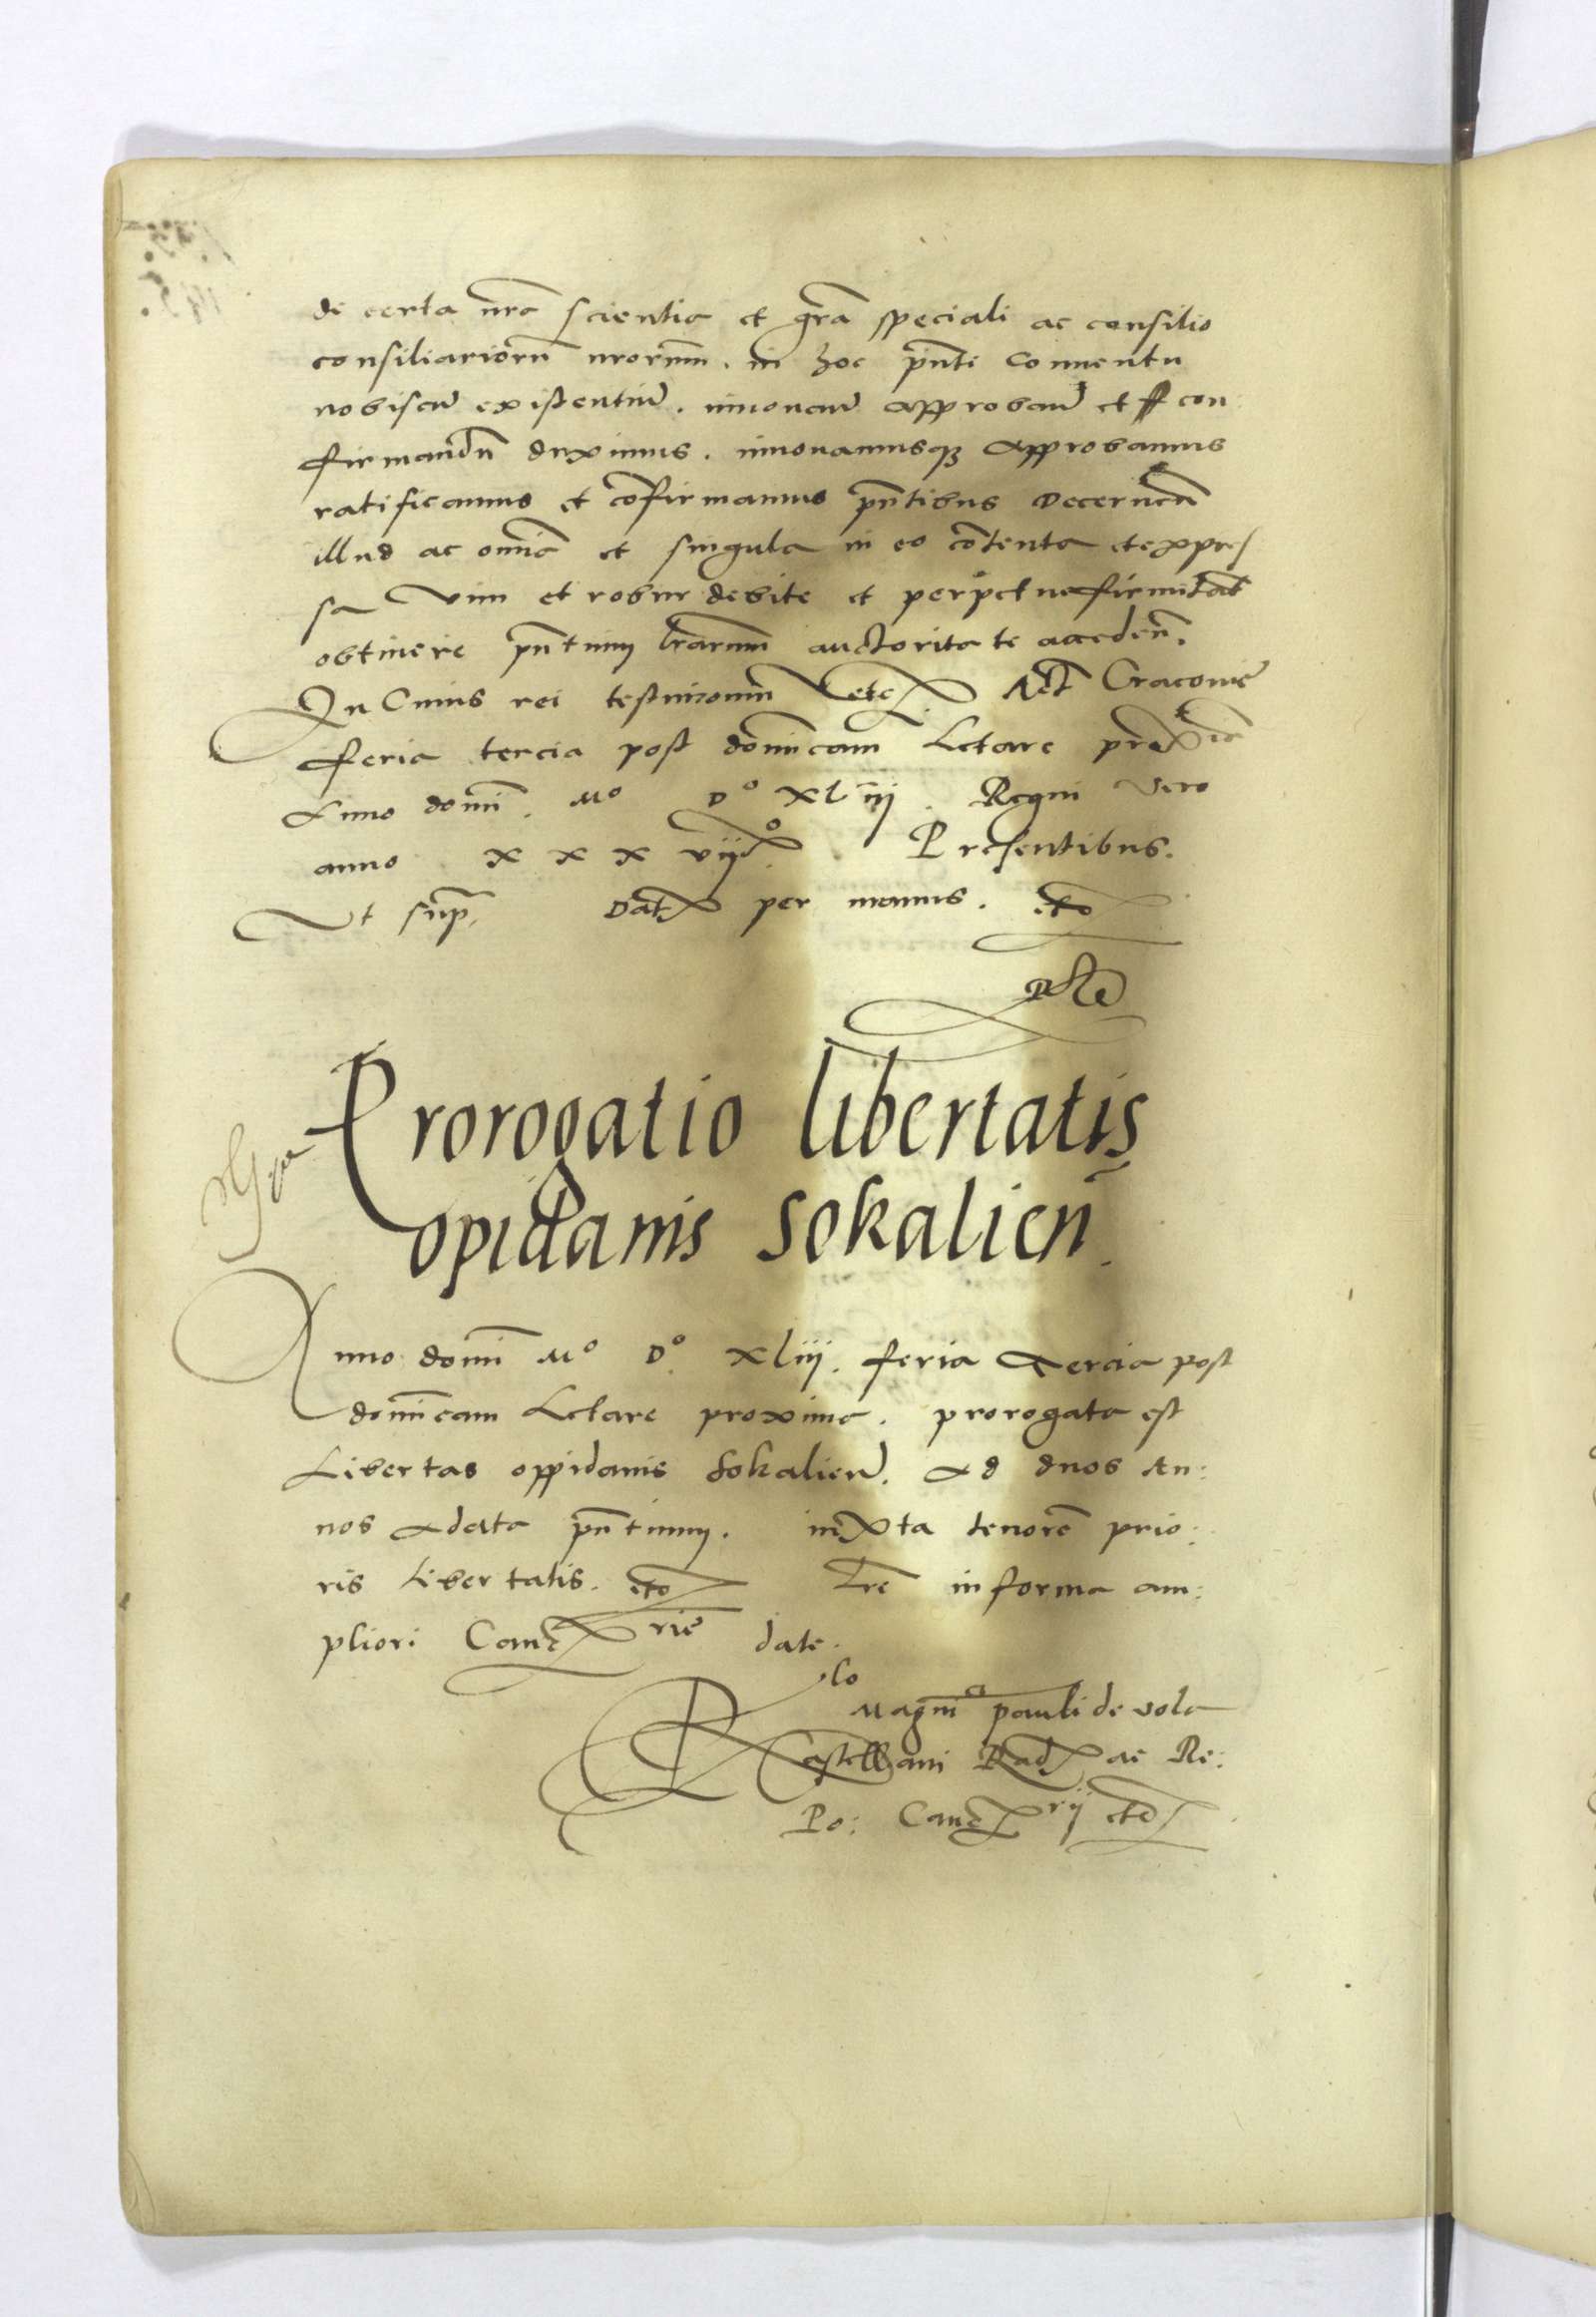 de certa nrã scientia et grã speciali ac consilio
consiliariorũ nrorum. in hoc pñti Conuentu
nobiscũ existentiũ. innouanđ approbanđ et con
firmandũ duximus. innouamusqʒ approbamus
ratificamus et cõfirmamus pñtibus Decernẽn
illud ac omĩa et singula in eo cõtenta et expres
sa Vim et robur debite et perpetue firmitatĩ
obtinere pñtium lrarum auctoritate acceden̄.
In Cuius rei testimonium etc. Act̃ Cracouie
feria tercia post dominicam Letare prox̃ia
Anno domĩ. Mº Dº xliiij. Regni Vero
anno x x x viijº. Presentibus.
Ut sup̃. Dat̃ per manus. etc
Prorogatio libertatis
opidanis Sokalieñ.
Anno domĩ Mº Dº xliiij. feria tercia post
domĩcam Letare proxima. prorogata est
Libertas oppidanis Sokalieñ. ad duos An:
nos a data pñtium. iuxta tenorẽ prio:
ris libertatis. etc Lrẽ in forma am:
pliori Canc̃rie date.
Rlo Magniᶜⁱ pauli de vola
Castellani Rad̃ ac Re:
Po: Canc̃rij etc